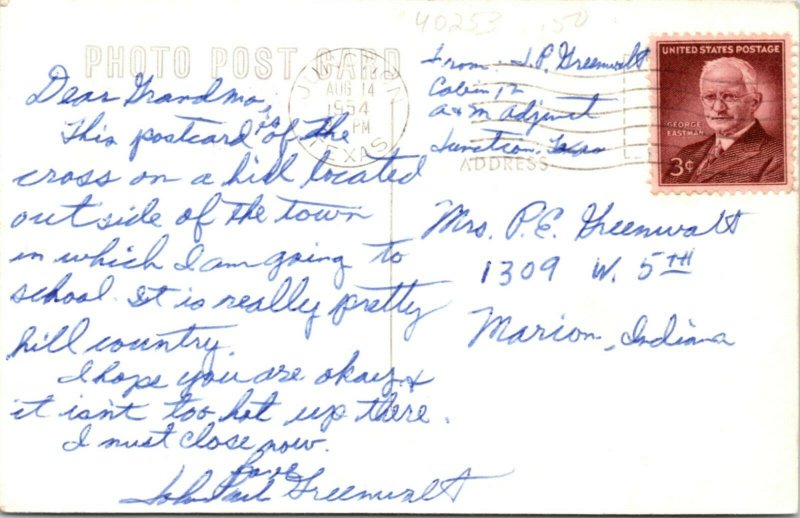 40253 .50
PHOTO POST CARD
Dear Grandma,
This postcard is of the
cross on a hill located
outside of the town
in which I am going to
school. It is really pretty
hill country.
I hope you are okay &
it isn't too hot up there.
I must close now.
Love
John Paul Greenwalt
JUNCTION
AUG 14
1954
PM
TEXAS
From: J.P. Greenwalt
Cabin 12
A&M Adjunct
Junction, Texas
ADDRESS
UNITED STATES POSTAGE
GEORGE
EASTMAN
3¢
Mrs. P.E. Greenwalt
1309 W. 5TH
Marion, Indiana